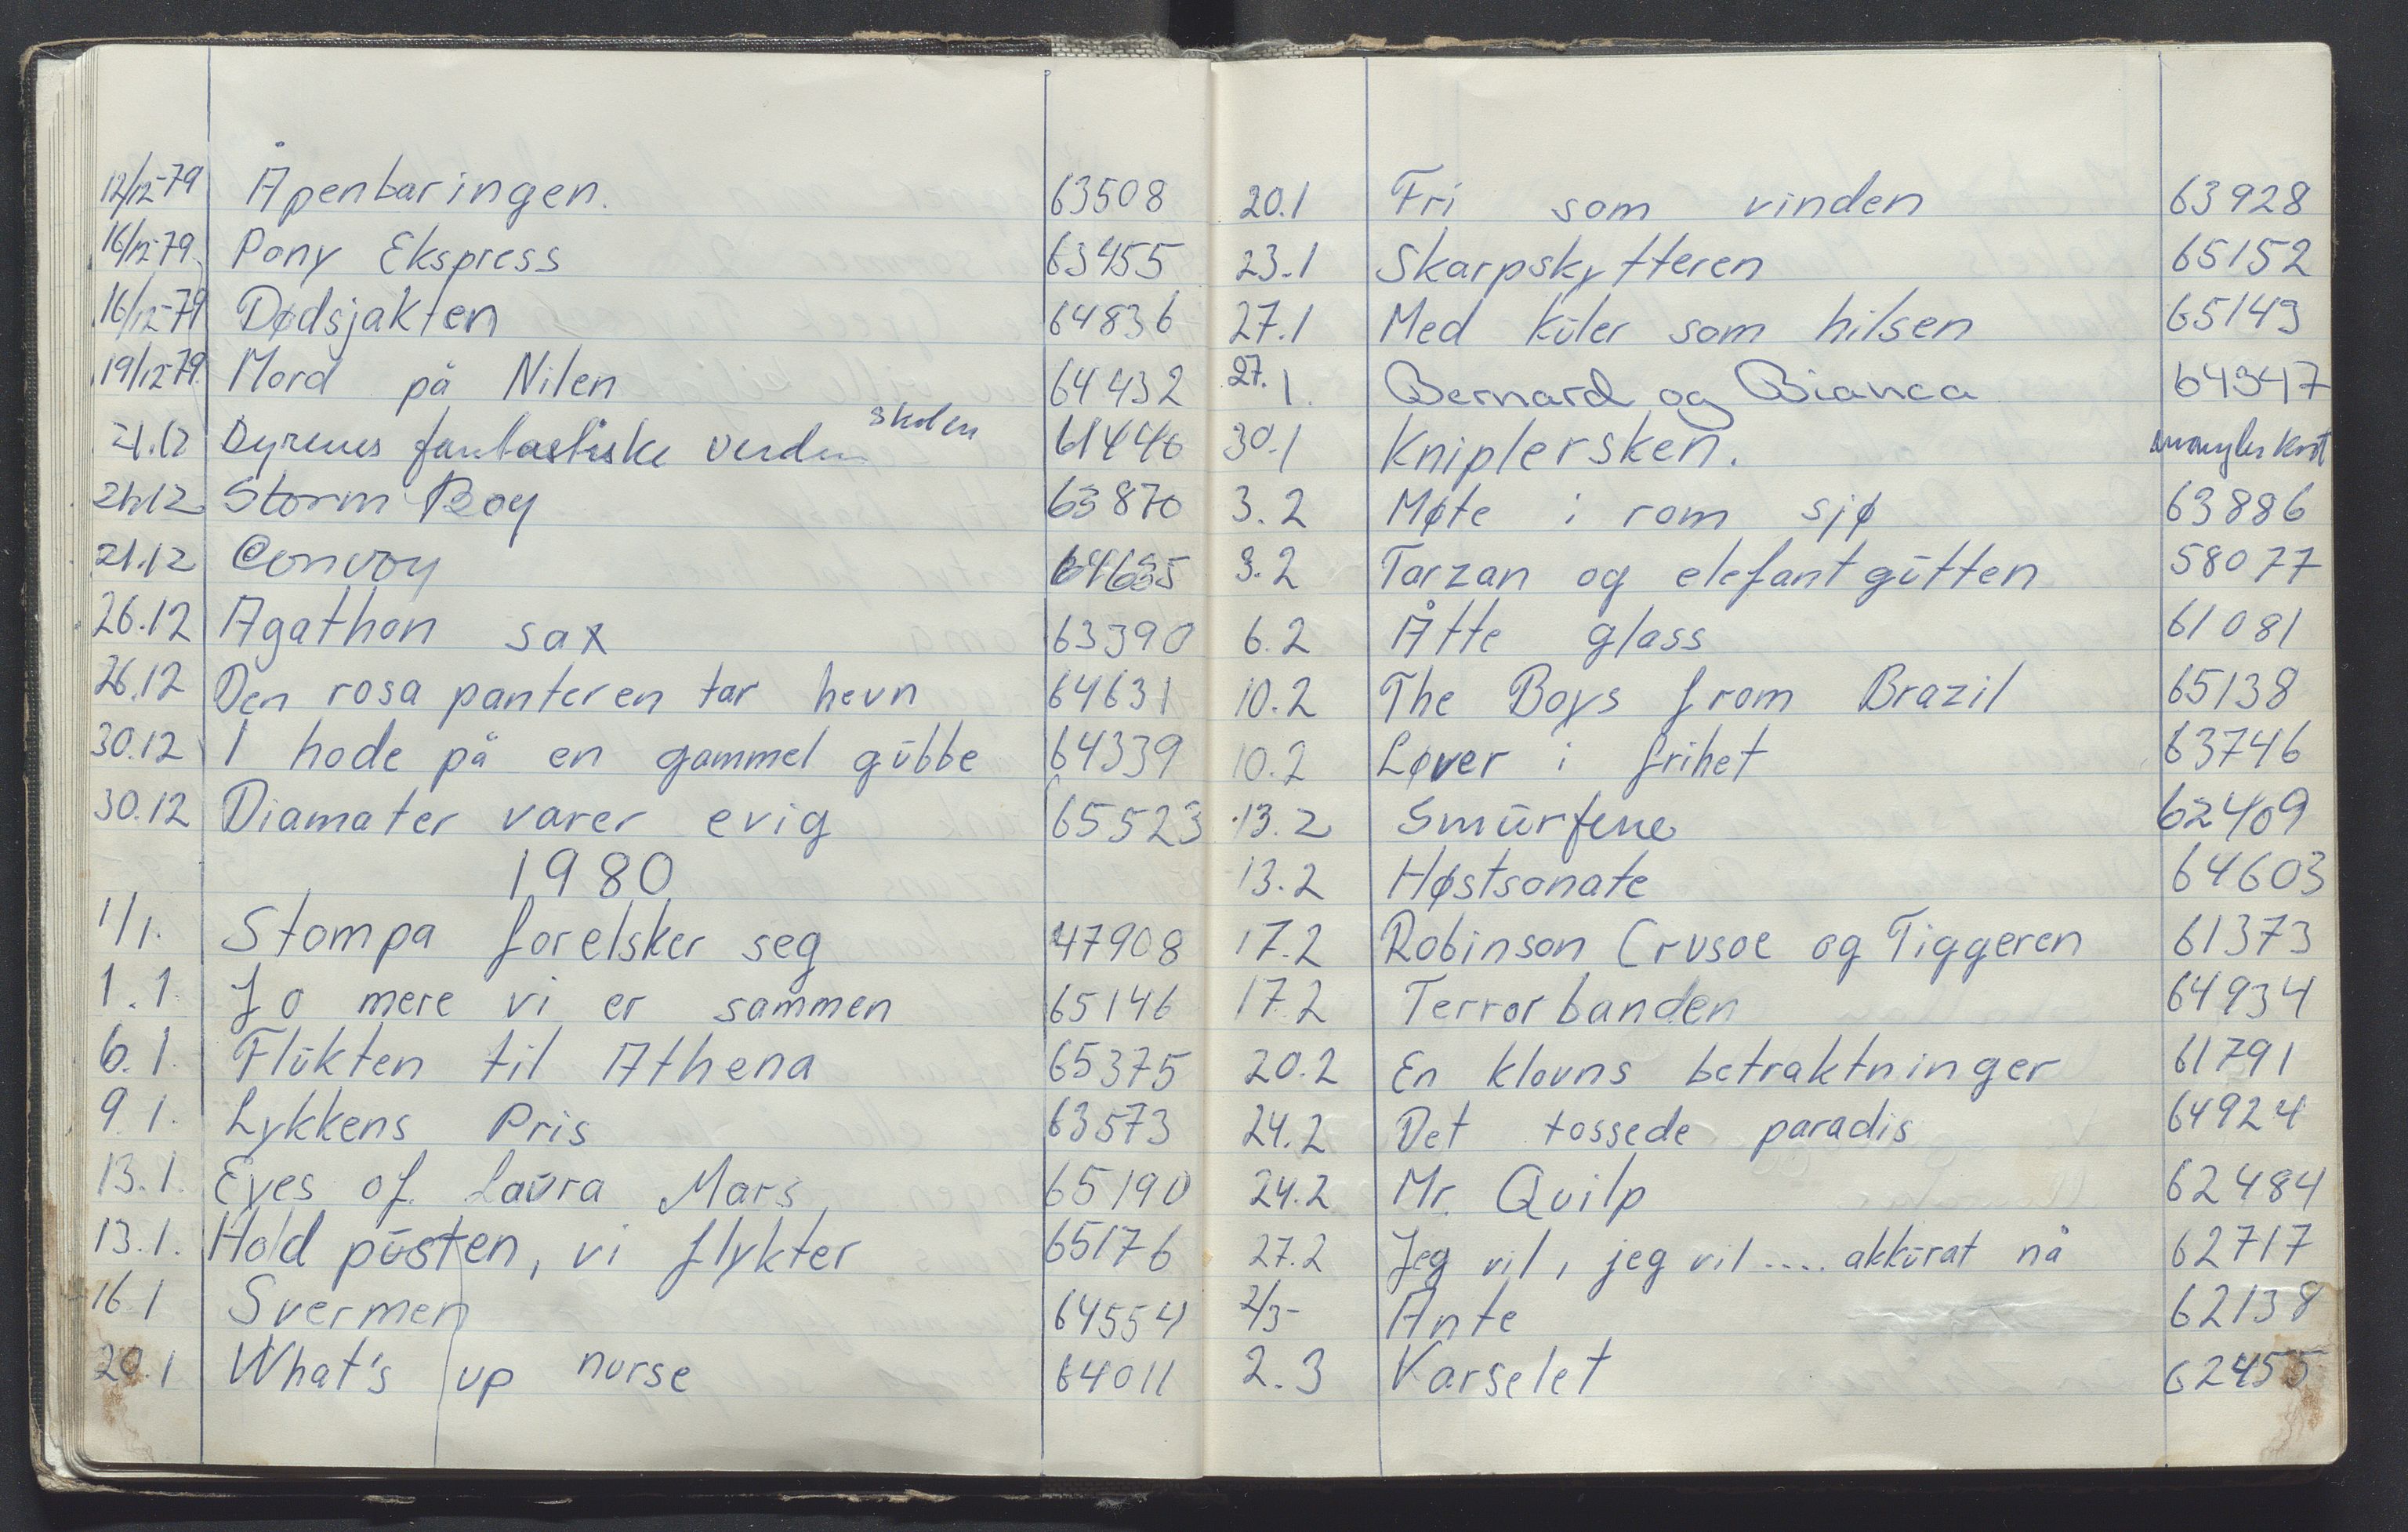 12/12-79 Åpenbaringen. 63508
16/12-79. Pony Ekspress 63455
16/12-79 Dødsjakten 64836
19/12-79. Mord på Nilen 64432
21.12 Dyrenes fantastiske verden skolen 61440
21.12 Storm Boy 63870
21.12 Convoy 64635
26.12 Agathon sax 63390
26.12 Den rosa panteren tar hevn 64631
30.12 I hode på en gammel gubbe 64339
30.12 Diamater varer evig 65523
1980
1/1. Stompa forelsker seg 47908
1.1. Jo mere vi er sammen 65146
6.1. Flukten til Athena 65375
9.1. Lykkens Pris 63573
13.1. Eyes of Laura Mars 65190
13.1. Hold pusten, vi flykter 65176
16.1 Svermen 64554
20.1 What's up nurse 64011
20.1 Fri som vinden 63928
23.1 Skarpskytteren 65152
27.1 Med kuler som hilsen 65143
27.1. Bernard og Bianca 64347
30.1 Kniplersken. mangler kort
3.2 Møte i rom sjø 63886
3.2 Tarzan og elefantgutten 58077
6.2 Åtte glass 61081
10.2 The Boys from Brazil 65138
10.2 Løver i frihet 63746
13.2 Smurfene 62409
13.2 Høstsonate 64603
17.2 Robinson Crusoe og Tiggeren 61373
17.2 Terrorbanden 64934
20.2 En klovns betraktninger 61791
24.2 Det tossede paradis 64924
24.2 Mr. Quilp 62484
27.2 Jeg vil, jeg vil .... akkurat nå 62717
2/3- Ante 62138
2.3 Varselet 62455